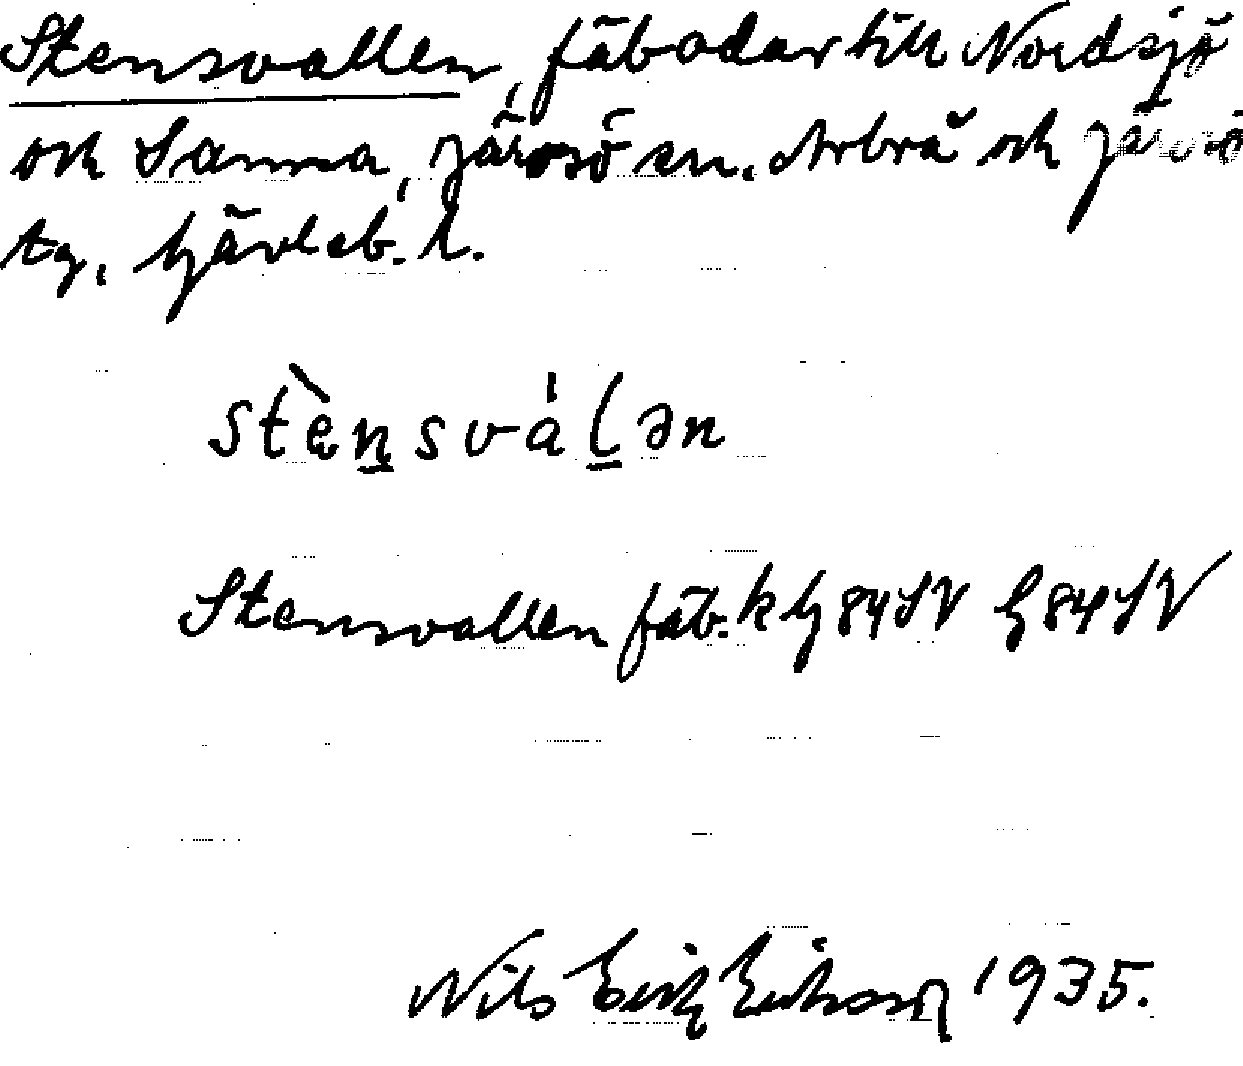 Stensvallen, fäbodar till Nordsjö
och Sanna, Järvsö sn. Arbrå och Järvsö
tg, Gävleb. l.
stènsvàlən
Stensvallen fäb. k G 84 SV G 84 SV
Nils Erik Eriksson 1935.